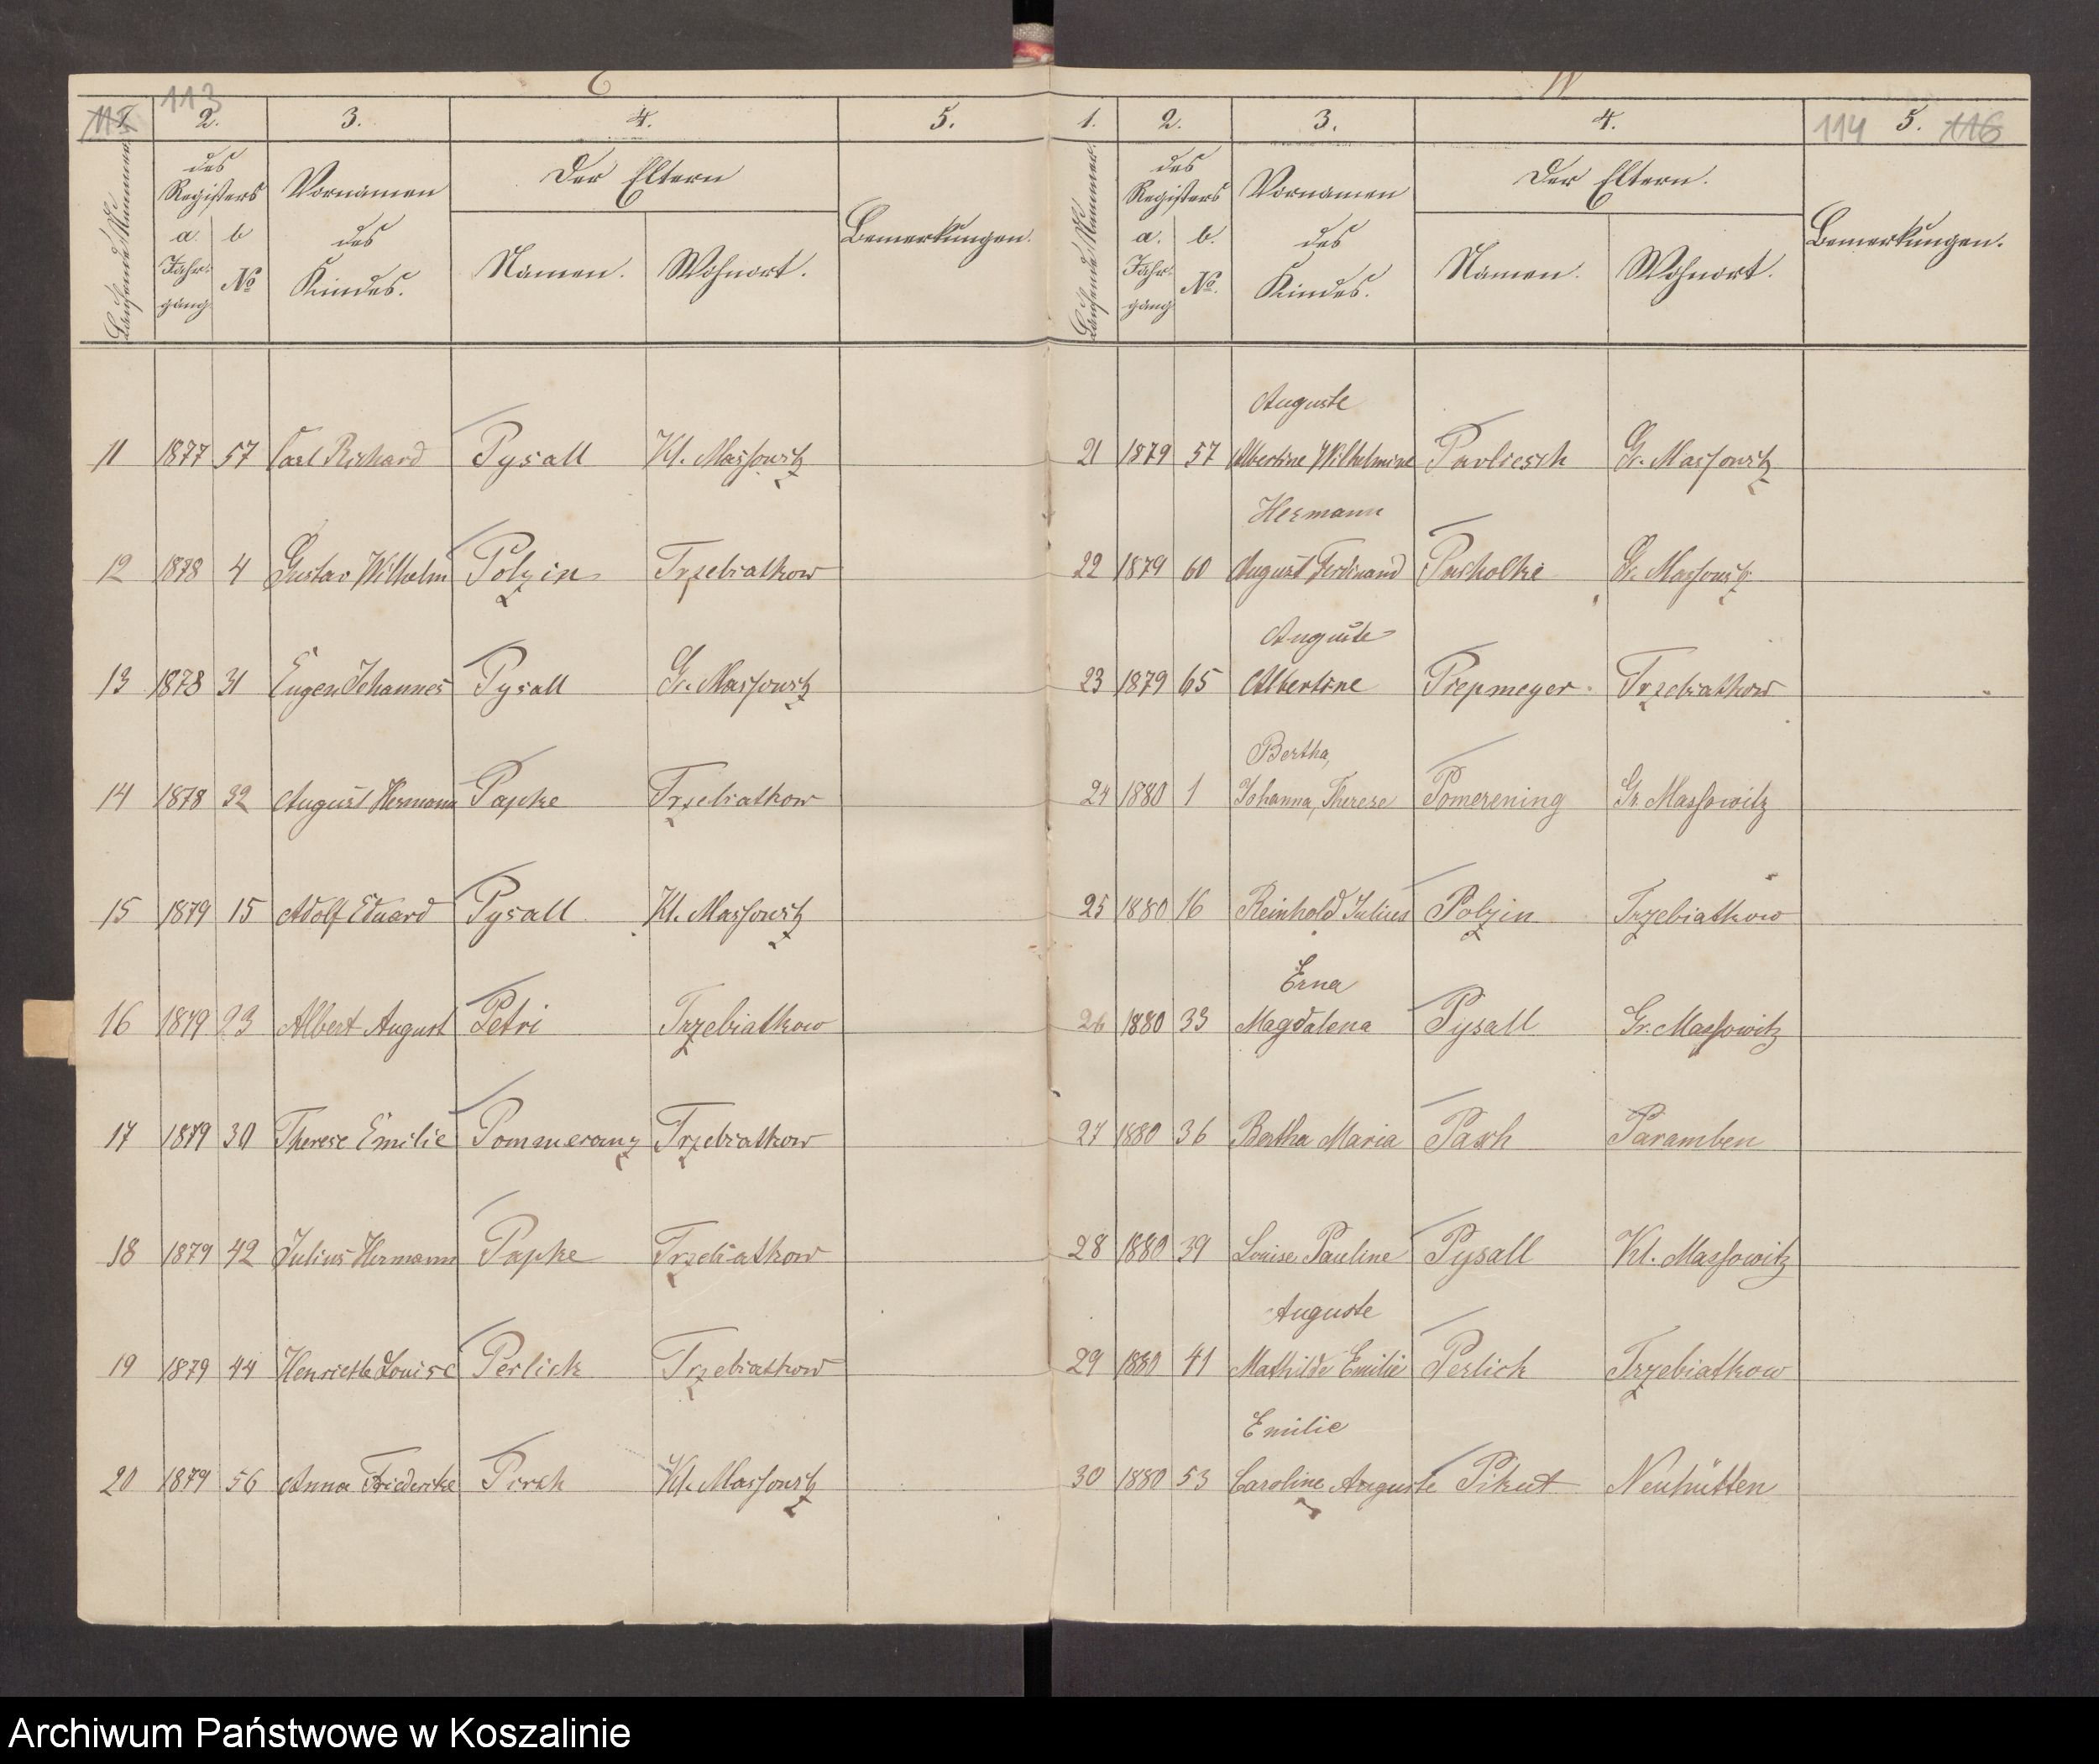 113
1. 2. 3. 4. 5.
Laufende Nummer
des Registers
a. Jahrgang
b №
Vornamen des Kindes.
Der Eltern
Namen. Wohnort.
Bemerkungen.
11 1877 57 Carl Richard Pysall Kl. Massowitz
12 1878 4 Gustav Wilhelm Polzin Trzebiatkow
13 1878 31 Eugen Johannes Pysall Gr. Massowitz
14 1878 32 August Hermann Papke Trzebiatkow
15 1879 15 Adolf Eduard Pysall Kl. Massowitz
16 1879 23 Albert August Petri Trzebiatkow
17 1879 30 Therese Emilie Pommeranz Trzebiatkow
18 1879 42 Julius Hermann Papke Trzebiatkow
19 1879 44 Henriette Louise Perlick Trzebiatkow
20 1879 56 Anna Friederike Pirch Kl. Massowitz
1. 2. 3. 4. 114 5. 116
Laufende Nummer.
des Registers
a. Jahrgang
b. №.
Vornamen des Kindes.
Der Eltern.
Namen. Wohnort.
Bemerkungen.
Auguste
21 1879 57 Albertine Wilhelmine Gr. Massowitz
Hermann
22 1879 60 August Ferdinand Gr. Massowitz
Auguste
23 1879 65 Albertine Piepmeyer Trzebiatkow
Bertha,
24 1880 1 Johanna, Therese Pomerening Gr. Massowitz
25 1880 16 Reinhold Julius Polzin Trzebiatkow
Erna
26 1880 33 Magdalena Pysall Gr. Massowitz
27 1880 36 Bertha Maria Pasch Paramben
28 1880 39 Louise Pauline Pysall Kl. Massowitz
Auguste
29 1880 41 Mathilde Emilie Perlick Trzebiatkow
Emilie
30 1880 53 Caroline Auguste Pikut Neuhütten
Archiwum Państwowe w Koszalinie